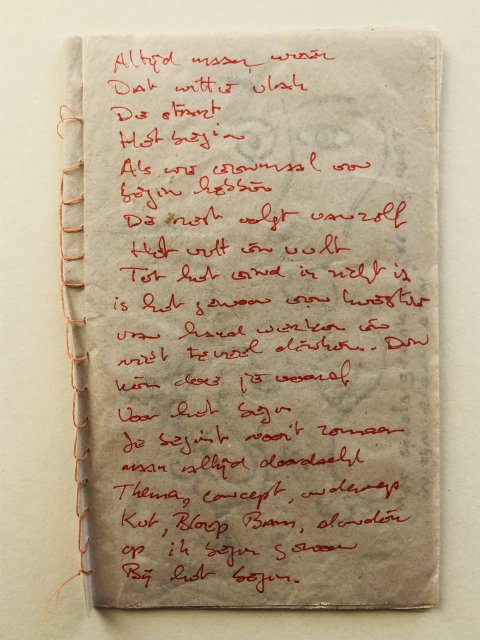 Altijd maar weer
Dat witte vlak
De start
Het begin
Als we eenmaal een
begin hebben
De rest volgt vanzelf
Het vult en vult
Tot het eind in zicht is
is het gewoon een kwestie
van hard werken en
niet teveel denken. Den
ken doe je vooraf
Voor het begin
Je begint nooit zomaar
maar altijd doordacht
Thema, concept, onderwerp
Kut, Bloop Bam,
op ik begin gewoon
Bij het begin.